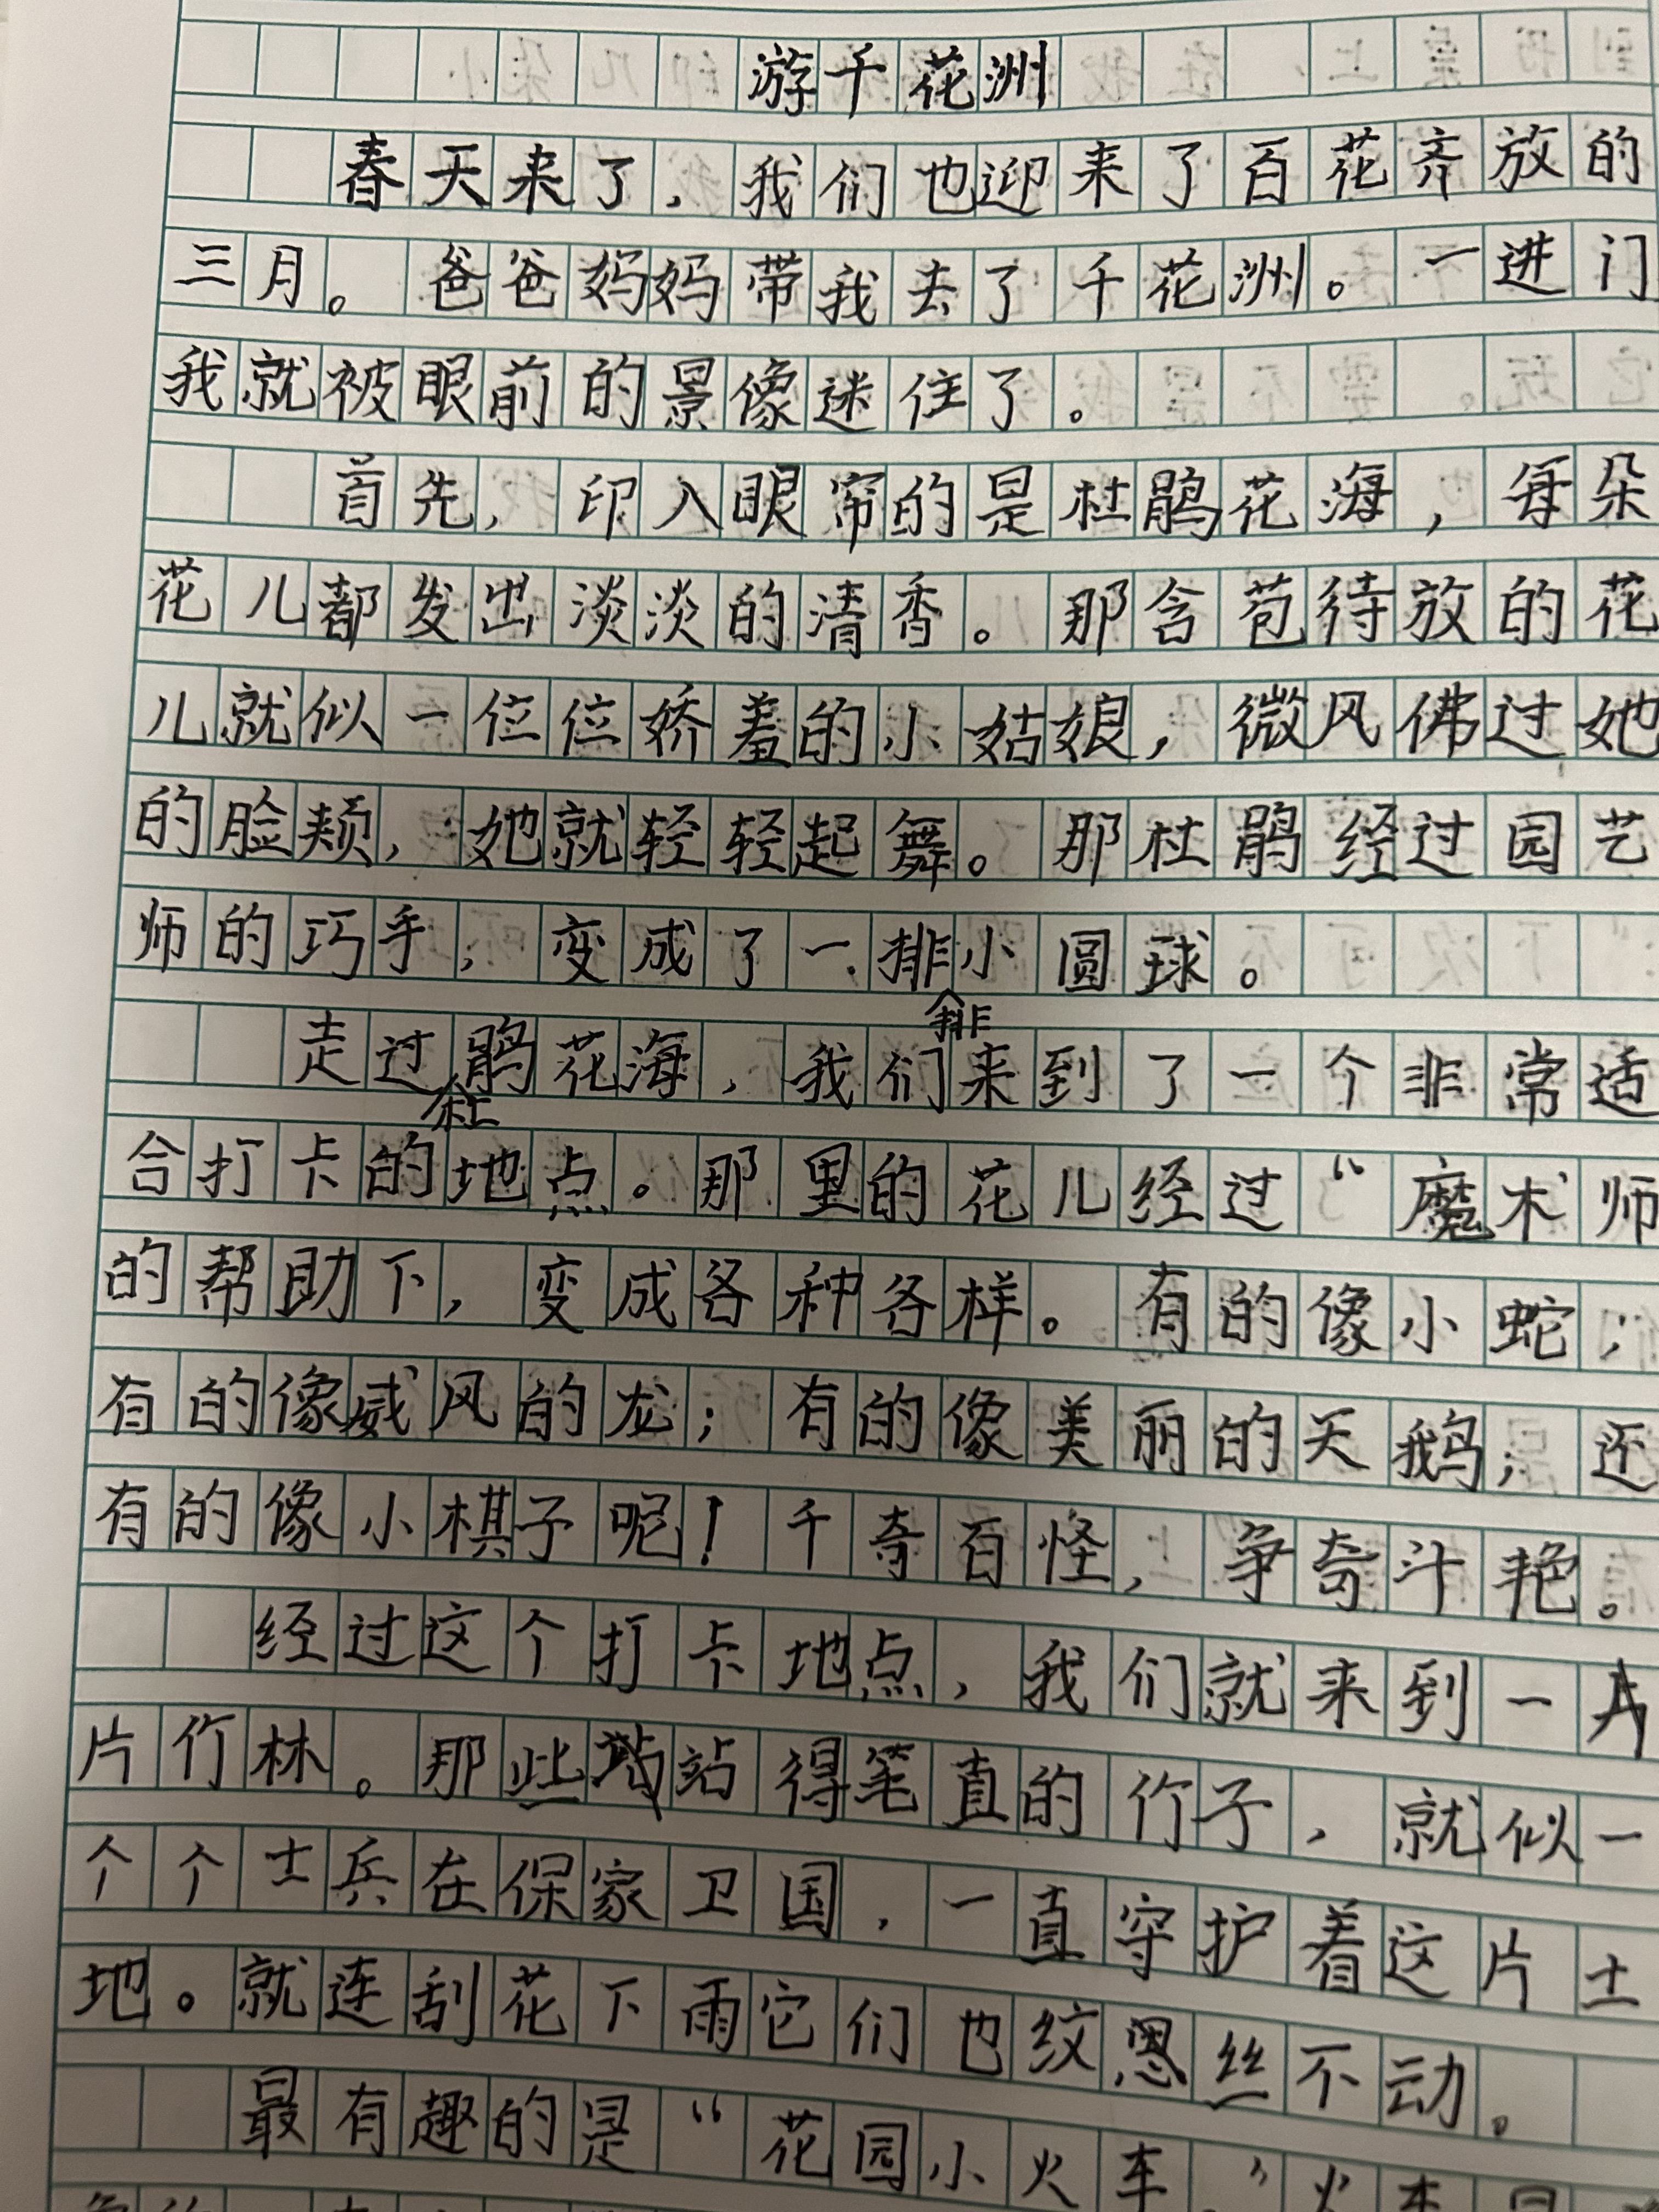 游千花洲
春天来了，我们也迎来了百花齐放的
三月。爸爸妈妈带我去了千花洲。一进门
我就被眼前的景像迷住了。
首先，印入眼帘的是杜鹃花海，每朵
花儿都发出淡淡的清香。那含苞待放的花
儿就似一位位娇羞的小姑娘，微风佛过她
的脸颊，她就轻轻起舞。那杜鹃经过园艺
师的巧手，变成了一排排小圆球。
走过杜鹃花海，我们来到了一个非常适
合打卡的地点。那里的花儿经过“魔术师
的帮助下，变成各种各样。有的像小蛇；
有的像威风的龙；有的像美丽的天鹅；还
有的像小棋子呢！千奇百怪，争奇斗艳。
经过这个打卡地点，我们就来到一
片竹林。那些站得笔直的竹子，就似一
个个士兵在保家卫国，一直守护着这片土
地。就连刮花下雨它们也纹恩丝不动。
最有趣的是“花园小火车”火车